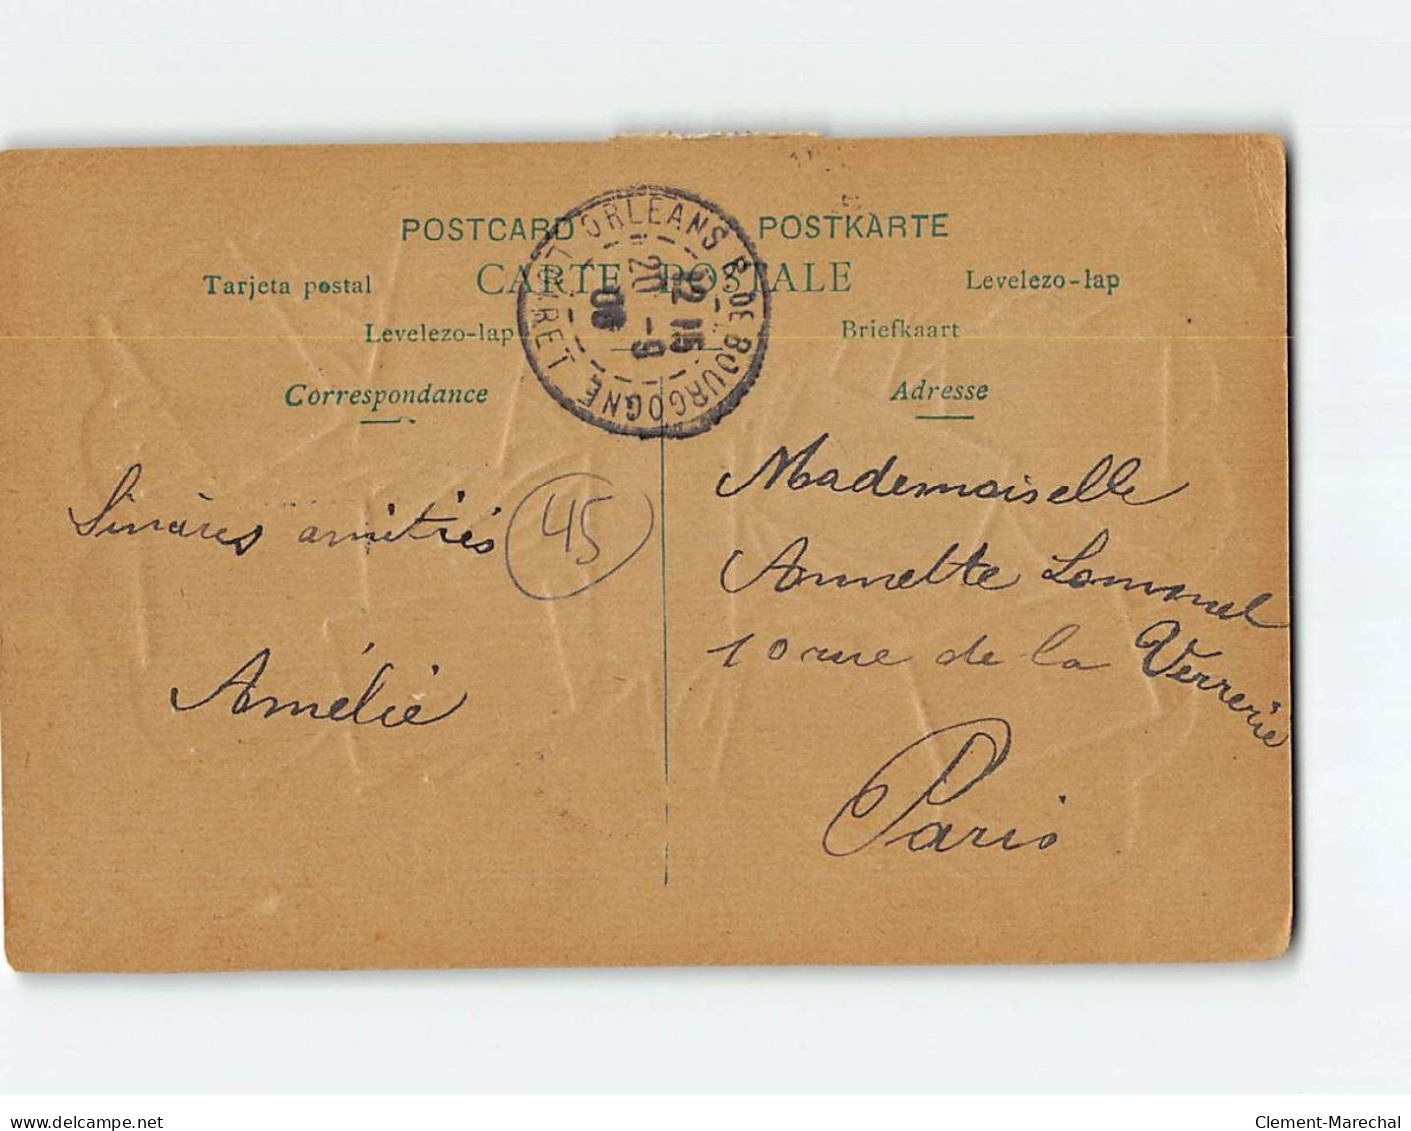 POSTCARD POSTKARTE
Tarjeta postal CARTE POSTALE Levelezo-lap
Levelezo-lap Briefkaart
Correspondance Adresse
ORLEANS B. DE BOURGOGNE LOIRET
12 15
20 -9
08
Mademoiselle
Annette Lommel
10 rue de la Verrerie
Paris
amitiés
45
Amélie
delcampe.net
Clement-Marechal